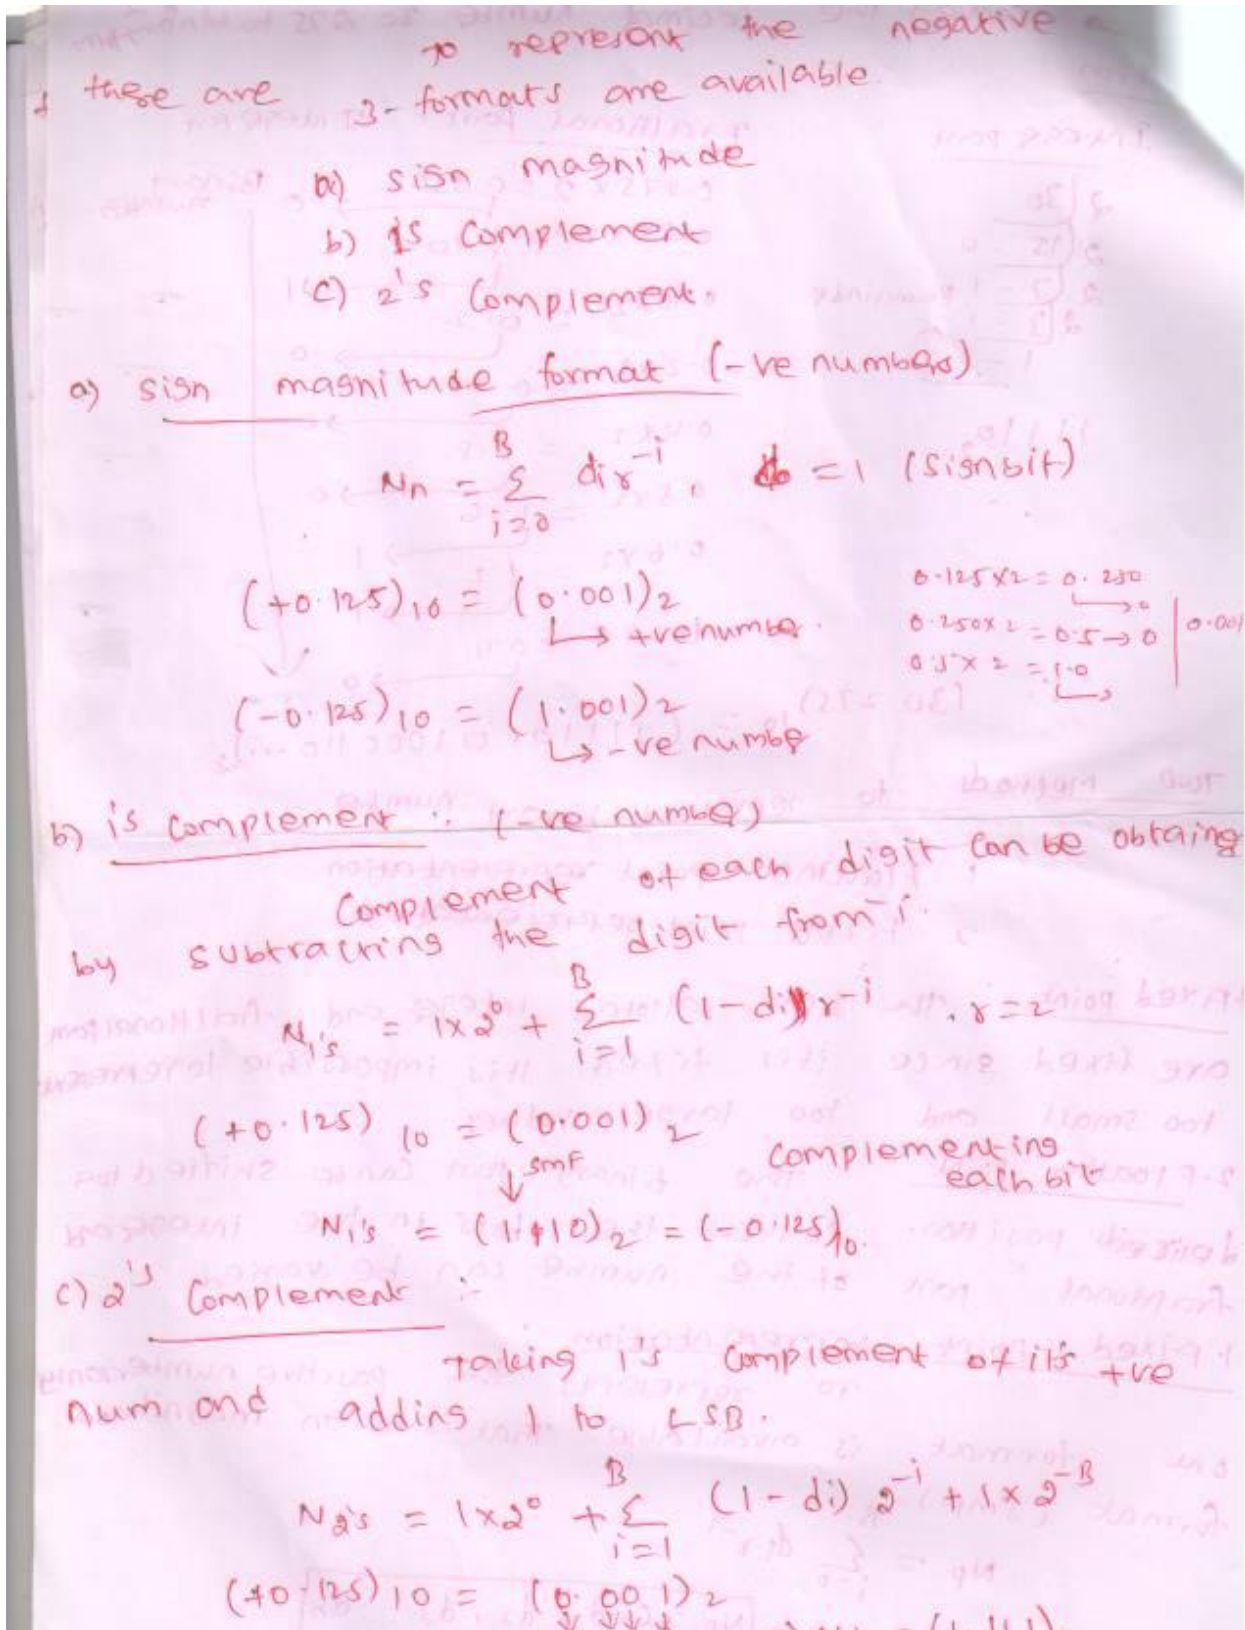 to represent the negative
these are 3- formats are available.
a) sign magnitude
b) 1's complement
c) 2's complement.
a) sign magnitude format (-ve numbers)
Nn = Σ(i=0 to B) di r^-i , d0 = 1 (sign bit)
(+0.125)10 = (0.001)2
↳ +ve number.
0.125x2 = 0.250 → 0
0.250x2 = 0.5 → 0 | 0.001
0.5 x 2 = 1.0
(-0.125)10 = (1.001)2
↳ -ve number
b) 1's complement :- (-ve number)
complement of each digit can be obtaing
by subtracting the digit from 1.
N1's = 1x2^0 + Σ(i=1 to B) (1-di) r^-i , r=2
(+0.125)10 = (0.001)2
↓ smf complementing
each bit
N1's = (1.110)2 = (-0.125)10.
c) 2's complement :-
Taking 1's complement of it's +ve
num and adding 1 to LSB.
N2's = 1x2^0 + Σ(i=1 to B) (1-di) 2^-i + 1x2^-B
(+0.125)10 = (0.001)2